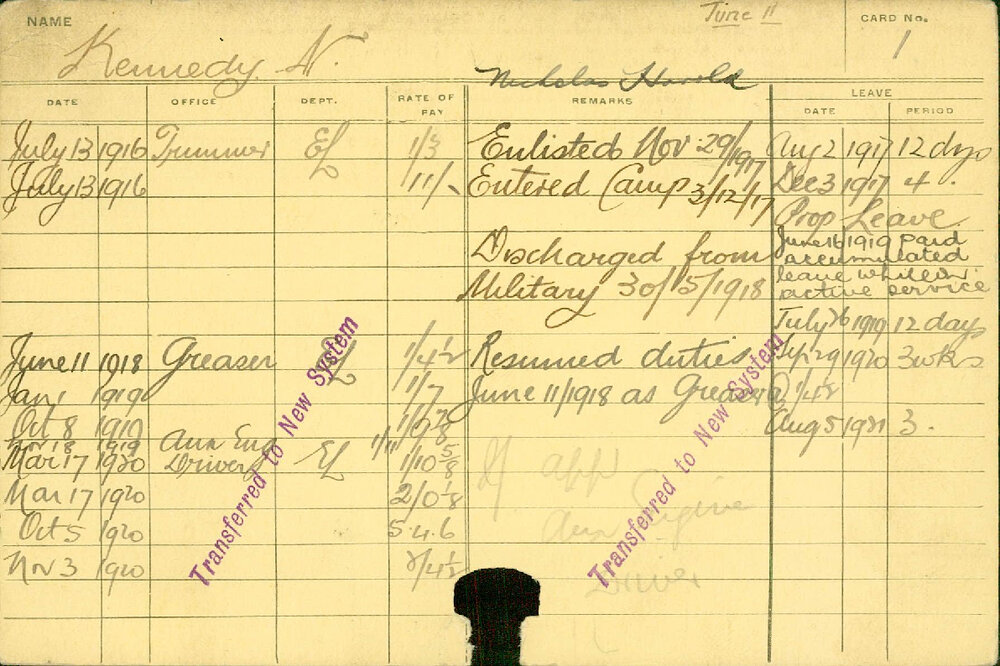 NAME
June 11
CARD No.
1
Kennedy. N.
Nicholas Harold
DATE OFFICE DEPT. RATE OF PAY REMARKS LEAVE
DATE PERIOD
July 13 1916 Trimmer EL 1/3 Enlisted Nov 29/1917 Aug 2 1917 12 dys
July 13 1916 /11/- Entered Camp 3/12/17 Dec 3 1917 4.
Prop Leave
Discharged from June 16 1919 paid
accumulated
Military 30/5/1918 leave while in
active service
July 26 1919 12 days
June 11 1918 Greaser EL 1/4½ Resumed duties Sept 29 1920 3 wks
Jan 1 1919 1/7 June 11/1918 as Greaser @ 1/4½
Oct 8 1919 Aug 5 1921 3.
Nov 18 1919 Aux Eng 1/11
Mar 17 1920 Driver EL 1/10⅝ If app
Mar 17 1920 2/0⅛
Oct 5 1920 5 4.6 Aux Engine
Nov 3 1920 2/4½ Driver
Transferred to New System
Transferred to New System